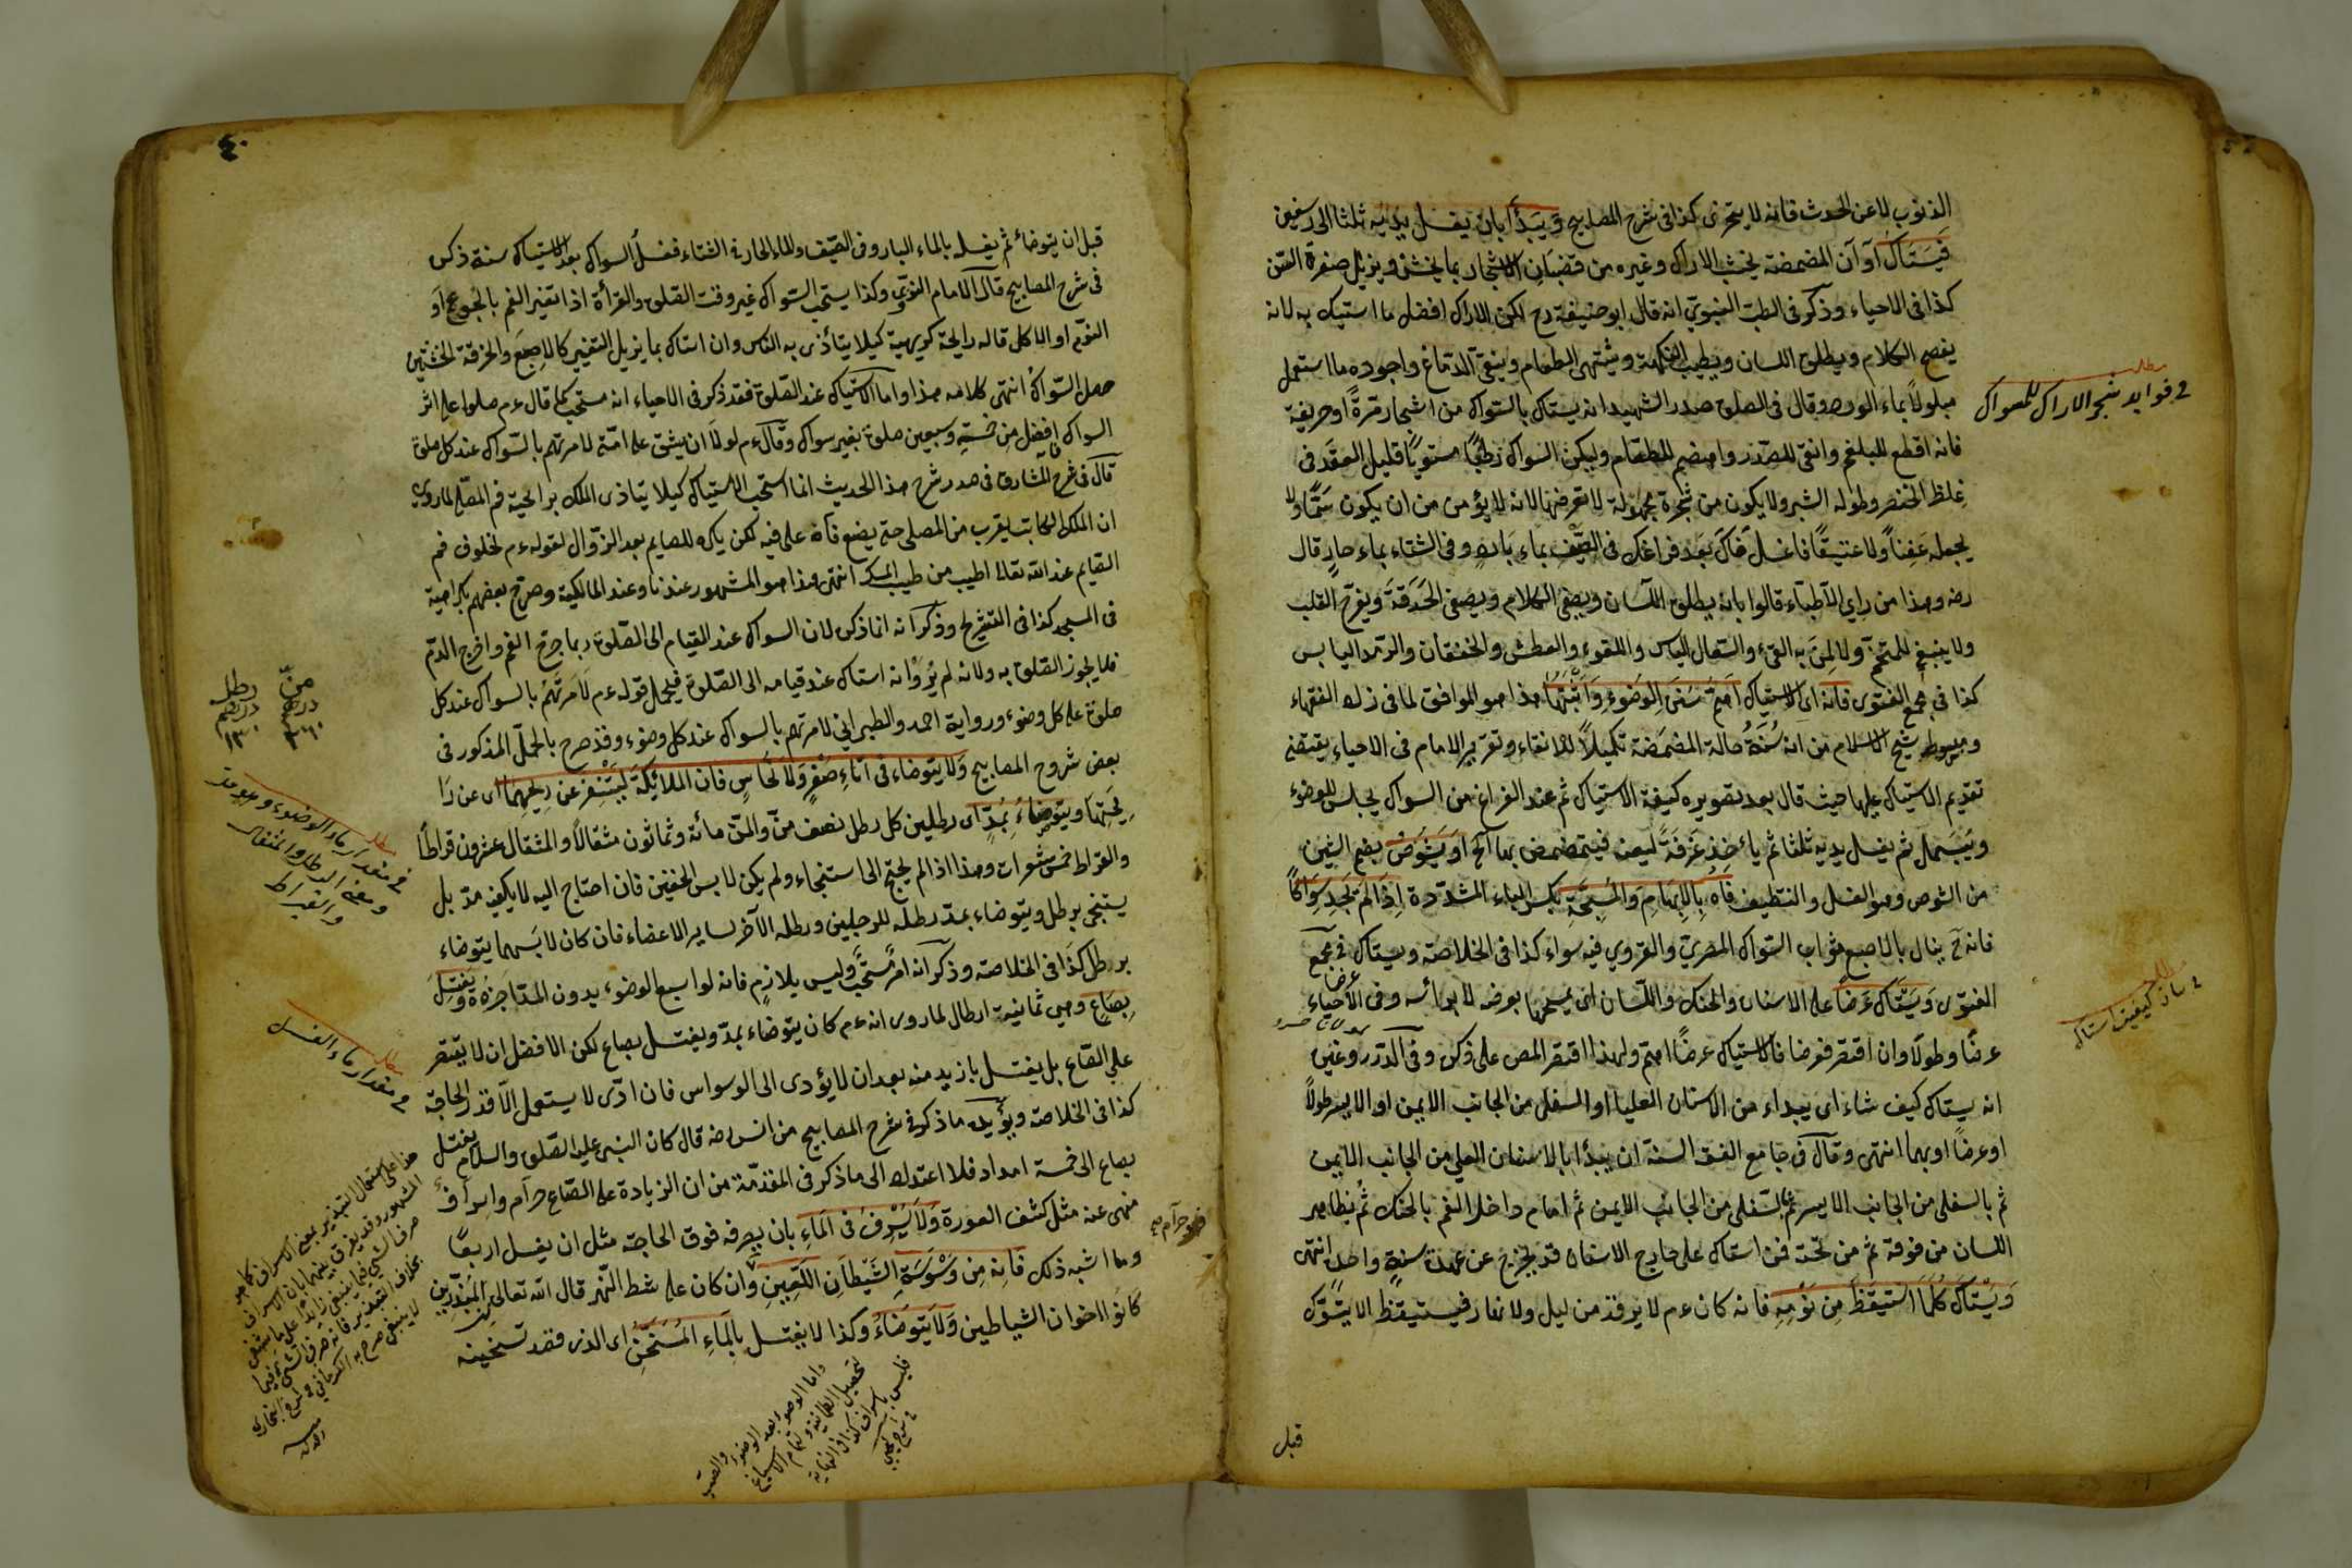 الذنوب لا عن الحدث فانه لا يتجزى كذا فى شرح المصابيح ويبدأ بان يغسل يديه ثلثا الى رسغين
فيستاك آوآن المضمضة بخشب الاراك وغيره من قضبان الاشجار بما يخشن ويزيل صفرة السن
كذا فى الاحياء وذكر فى الطب النبوي انه قال ابو حنيفة رح لكن الاراك افضل ما استيك به لانه
يفصح الكلام ويطلق اللسان ويطيب النكهة ويشتهى الطعام وينقى الدماغ واجوده ما استعمل
مبلولا بماء الورد وقال فى الصلوة صدر الشهيد انه يستاك بالسواك من اشجار مرة او حريفة
فانه اقطع للبلغم وانقى للصدر واهضم للطعام وليكن السواك رطبا مستويا قليل العقد فى
غلظ الخنصر وطوله الشبر ولا يكون من شجرة مجهولة لا تعرفها لانه لا يؤمن من ان يكون سما ولا
يجعله عفنا ولا عتيقا فاغسل فاك بعد فراغك فى الصيف بماء بارد وفى الشتاء بماء حار قال
رضه وهذا من راى الاطباء قالوا بانه يطلق اللسان ويصفى الكلام ويصفى الحدقة ويفرح القلب
ولا ينبغى للمتخم ولا لمن به القئ والسعال اليابس واللقوة والعطش والخفقان والرمد اليابس
كذا فى مجمع الفتوى فانه اى الاستياك اهم سنن الوضوء واثبتها هذا هو الموافق لما فى زاد الفقهاء
ومبسوط شيخ الاسلام من انه سنة حالة المضمضة تكميلا للانقاء وتقرير الامام فى الاحياء يقتضى
تقديم الاستياك عليها حيث قال بعد تصويره كيفية الاستياك ثم عند الفراغ من السواك يجلس للوضوء
ويبسمل ثم يغسل يديه ثلثا ثم ياخذ غرفة ليمينه فيتمضمض بها آلخ او يشوص بضم الشين
من الشوص وهو الغسل والتنظيف فاه بالابهام والمسبحة بكسر الباء المشددة اذا لم يجد سواكا
فانه ح ينال بالاصبع ثواب السواك المصرى والقروي فيه سواء كذا فى الخلاصة ويستاك فى مجمع
الفتوى ويستاك عرضا على الاسنان والحنك واللسان اى يمسحها بعرضه لا براسه وفى الاحياء
عرضا وطولا وان اقتصر فعرضا فالاستياك عرضا اهم ولهذا اقتصر المص على ذكره وفى الدرر وغيره
انه يستاك كيف شاء اى يبداء من الاسنان العليا او السفلى من الجانب الايمن او الايسر طولا
او عرضا او بهما انتهى وقال فى جامع الفقه السنة ان يبدأ بالاسنان العلى من الجانب الايمن
ثم بالسفلى من الجانب الايسر ثم بالسفلى من الجانب الايمن ثم امام داخل الفم بالحنك ثم بظاهر
اللسان من فوقه ثم من تحته فمن استاك على خارج الاسنان قد يخرج عن عهدة سنة واحدة انتهى
ويستاك كلما استيقظ من نومه فانه كان عم لا يرقد من ليل ولا نهار فيستيقظ الا يتسوك
قبل
مطلب
فى فوايد شجر الاراك للسواك
فى بيان كيفية استاك
٤٠
قبل ان يتوضأ ثم يغسله بالماء البارد فى الصيف والماء الحار فى الشتاء فغسل السواك بعد الاستياك سنة ذكره
فى شرح المصابيح قال الامام النووي وكذا يستحب السواك غير وقت الصلوة والقرأة اذا تغير الفم بالجوع او
النوم او الاكل فاله رايحة كريهة كيلا يتأذى به الناس وان استاك بما يزيل التغيير كالاصبع والخرقة الخشنين
حصل السواك انتهى كلامه هذا واما الاستياك عند الصلوة فقد ذكر فى الاحياء انه مستحب كما قال عم صلوة على اثر
السواك افضل من خمسة وسبعين صلوة بغير سواك وقال عم لولا ان يشق على امتى لامرتهم بالسواك عند كل صلوة
قال فى شرح المشارق فى صدر شرح هذا الحديث انما استحب الاستياك كيلا يتاذى الملك برايحة فم المصلى لما روى
ان الملك الكاتب يقرب من المصلى حتى يضع فاه على فيه لكن يكره للصايم بعد الزوال لقوله عم لخلوف فم
الصايم عند الله تعالى اطيب من طيب المسك انتهى وهذا هو المشهور عندنا وعند المالكية وصرح بعضهم بكراهية
فى المسجد كذا فى التنقيح وذكر انه انما ذكره لان السواك عند القيام الى الصلوة ربما جرح الفم واخرج الدم
فلا يجوز الصلوة به ولانه لم يرو انه استاك عند قيامه الى الصلوة فيحمل قوله عم لامرتهم بالسواك عند كل
صلوة على كل وضوء ورواية احمد والطبراني لامرتهم بالسواك عند كل وضوء وقد صرح بالحمل المذكور فى
بعض شروح المصابيح ولا يتوضاء فى اناء صفر ولا نحاس فان الملائكة ليتنفر عن ريحهما اى عن را
يحتها ويتوضاء بمد اى رطلين كل رطل نصف من والمن مائة وثمانون مثقالا والمثقال عشرون قراطا
والقراط خمس شعرات وهذا اذا لم يحتج الى استنجاء ولم يكن لابس الخفين فان احتاج اليه لا يكفيه مد بل
يستنجى برطل ويتوضاء بمد رطله للرجلين ورطله الآخر لساير الاعضاء فان كان لابسهما يتوضاء
برطل كذا فى الخلاصة وذكر انه امر مستحب وليس بلازم فانه لو اسبغ الوضوء بدون المد اجزءه ويغتسل
بصاع وهي ثمانية ارطال لما روى انه عم كان يتوضاء بمد ويغتسل بصاع لكن الافضل ان لا يقتصر
على الصاع بل يغتسل بازيد منه بعد ان لا يؤدى الى الوسواس فان ادى لا يستعمل الا قدر الحاجة
كذا فى الخلاصة ويؤيده ما ذكر فى شرح المصابيح من انس رضه قال كان النبى عليه الصلوة والسلام يغتسل
بصاع الى خمسة امداد فلا اعتداد الى ما ذكر فى المقدمة من ان الزيادة على الصاع حرام واسراف
منهى عنه مثل كشف العورة ولا يسرف فى الماء بان يصرفه فوق الحاجة مثل ان يغسل اربعا
وما اشبه ذلك فانه من وسوسة الشيطان اللعين وان كان على شط النهر قال الله تعالى ان المبذرين
كانوا اخوان الشياطين ولا يتوضاء وكذا لا يغتسل بالماء المسخن اى الذى قصد تسخينه
من درهم ٢٦٠
رطل درهم ١٣٠
مطلب
فى مقدار ماء الوضوء وهو مد
ومعنى الرطل والمثقال
والقيراط
مطلب
فى مقدار ماء الغسل
فهو حرام صح
واما الوضوء بعد الوضوء
لتحصيل الطمانينة
فليس باسراف كذا فى النهاية